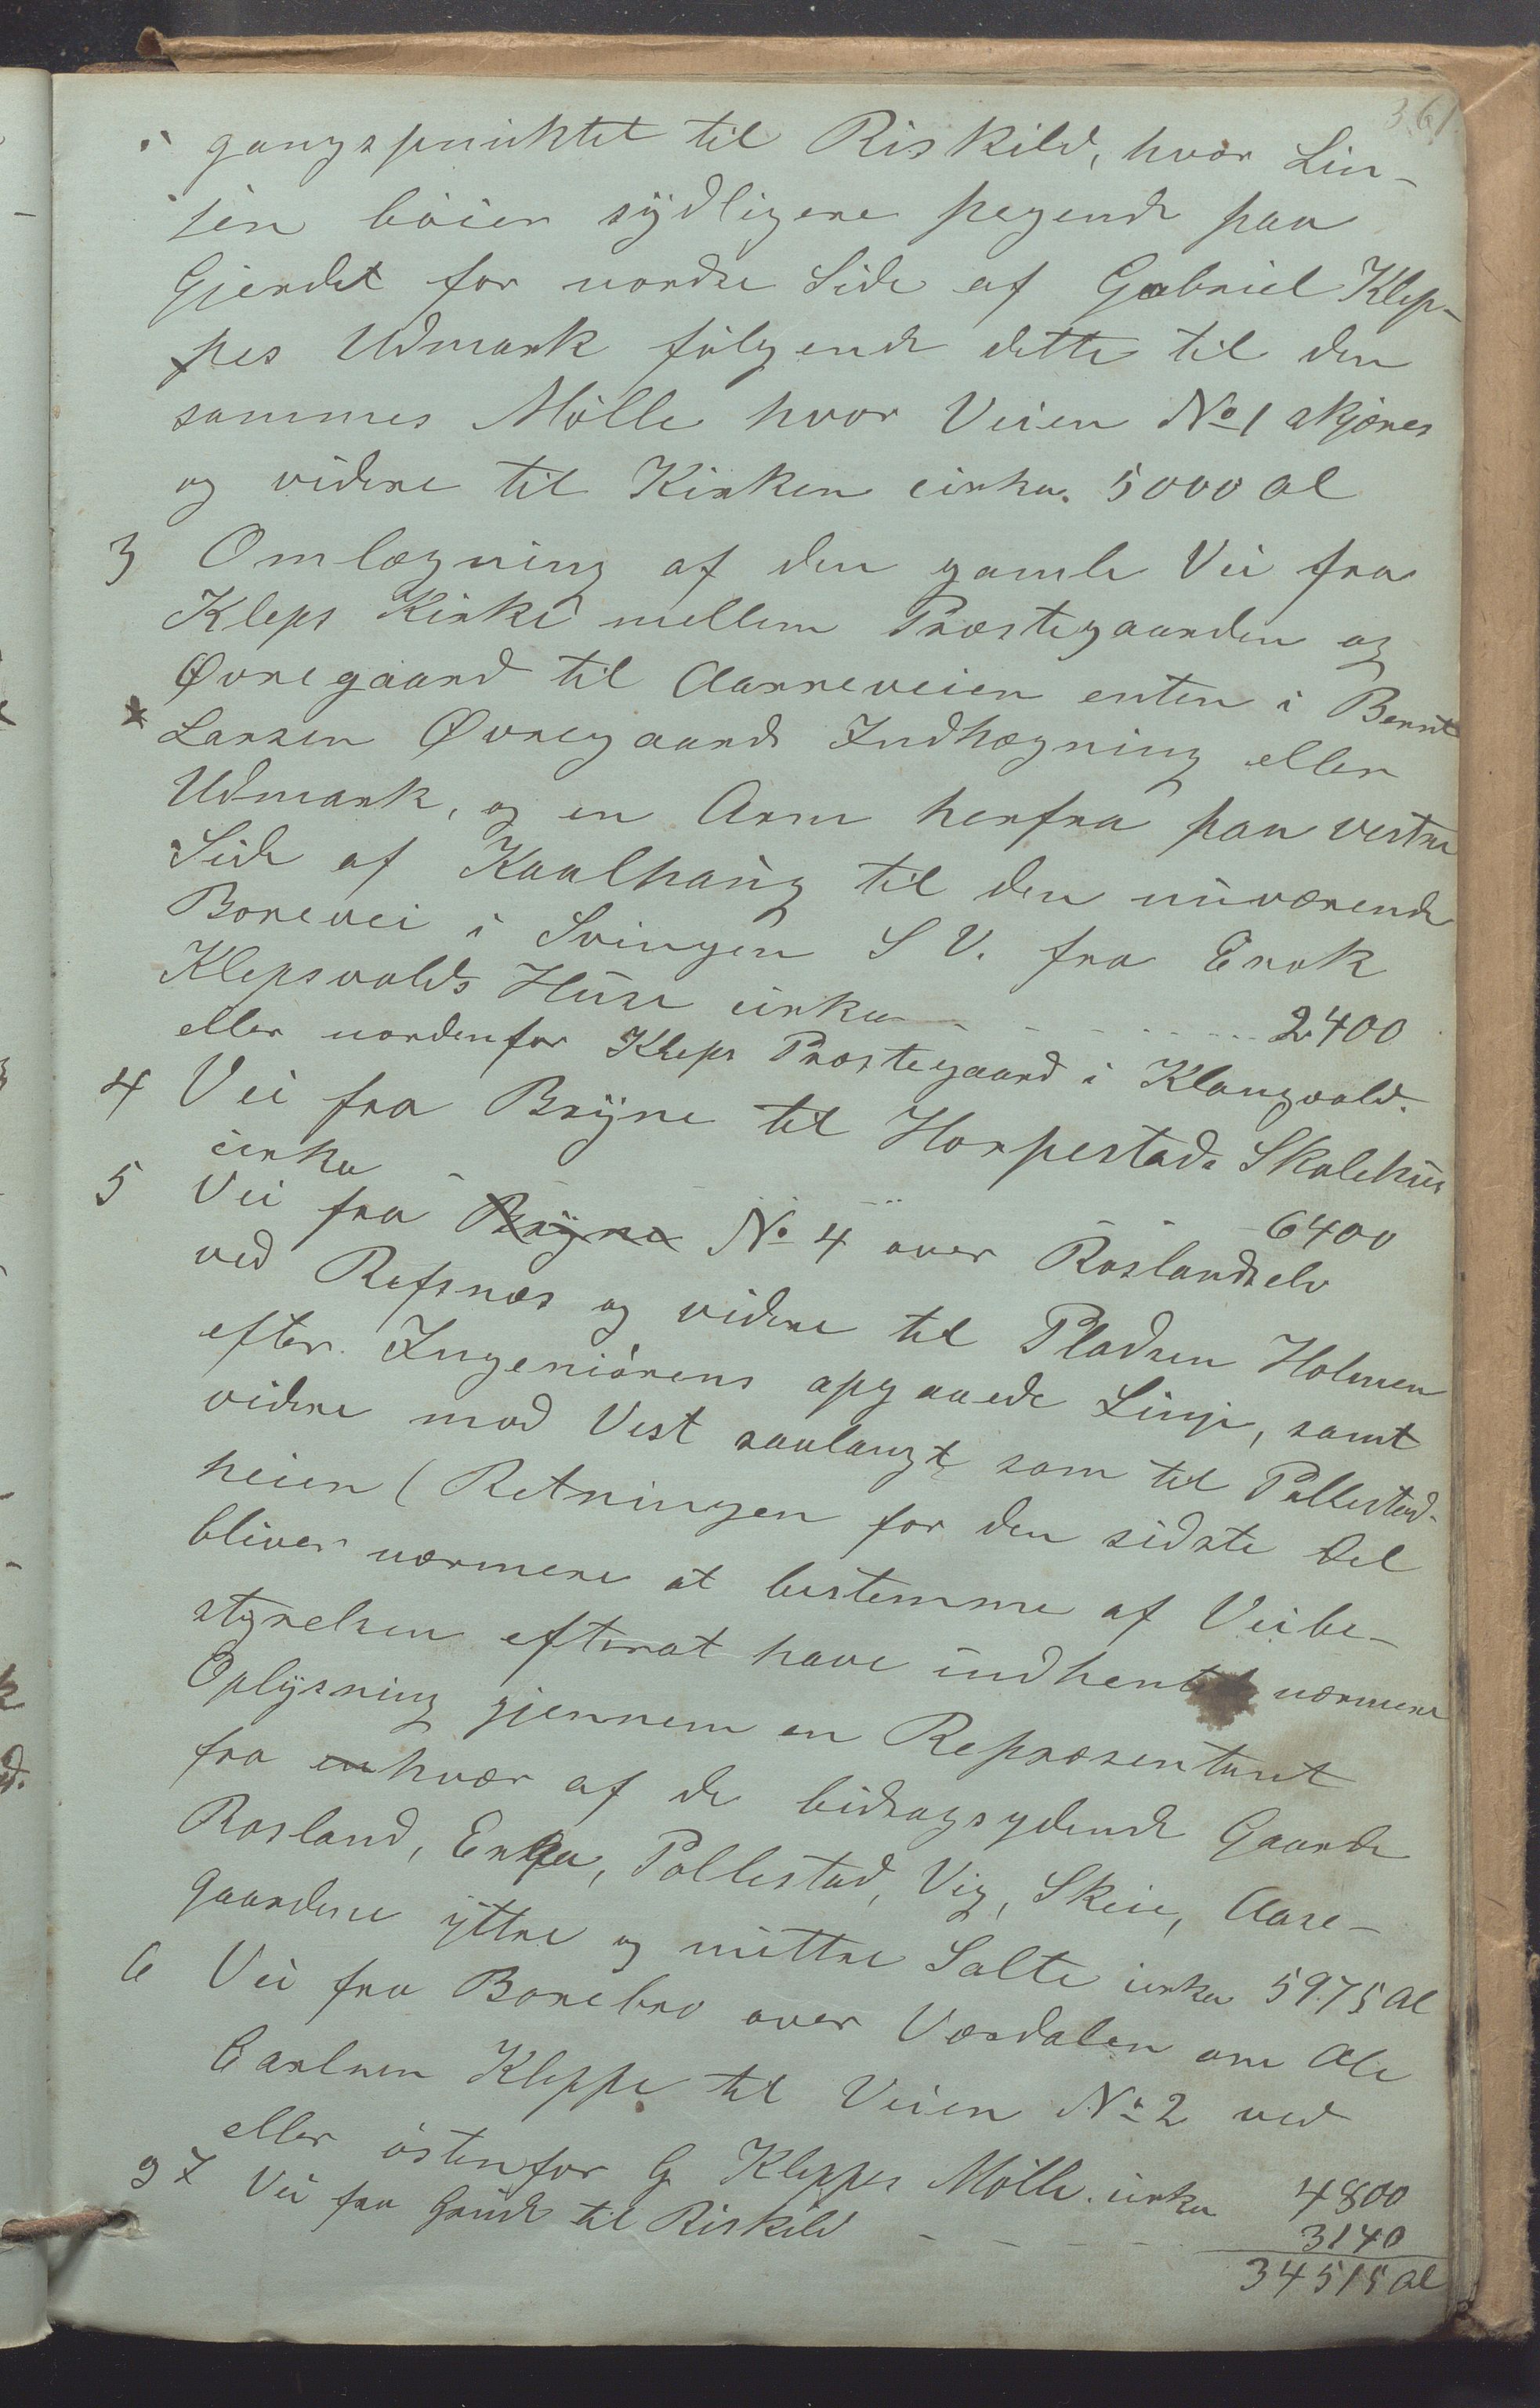 361.
gangspunktet til Riskild, hvor Lin-
jen böier sydligere pegende paa
Gjerdet for nordre Side af Gabriel Klep-
pes Udmark fölgende dette til den
sammes Mölle hvor Veien No 1 skjæres
og videre til Kirken cirka. 5000 al
3 Omlægning af den gamle Vei fra
Kleps Kirke mellem Præstegaarden og
Øvregaard til Aarreveien enten i Bernt
Larsen Øvregaards Indhegning eller
Udmark, og en Arm herfra paa vestre
Side af Kaalhaug til den nuværende
Borevei i Svingen S V. fra Enok
Klepsvolds Huse cirka - - - - - 2400
eller nordenfor Kleps Præstegaard i Klongvold.
4 Vei fra Bryne til Horpestads Skolehus
cirka - - - - 6400
5 Vei fra Bryne No 4 over Roslandselv
ved Refsnæs og videre til Pladsen Holmen
efter Ingeniörens opgaaede Linje, samt
videre mod Vest saalangt som til Pollestad-
heien (Retningen for den sidste Del
bliver nærmere at bestemme af Veibe-
styrelsen efterat have indhentet nærmere
Oplysning gjennem en Repræsentant
fra enhver af de bidragsydende Gaarde
Rosland, Erga, Pollestad, Vig, Skeie, Aase-
gaardene yttre og mittre Salte cirka 5975 al
6 Vei fra Borebro over Værdalen om Ole
Carlsen Kleppe til Veien No 2 ved
eller östenfor G Kleppes Mölle. cirka 4800
7 Vei fra Grude til Riskild - - - - 3140
34515 al